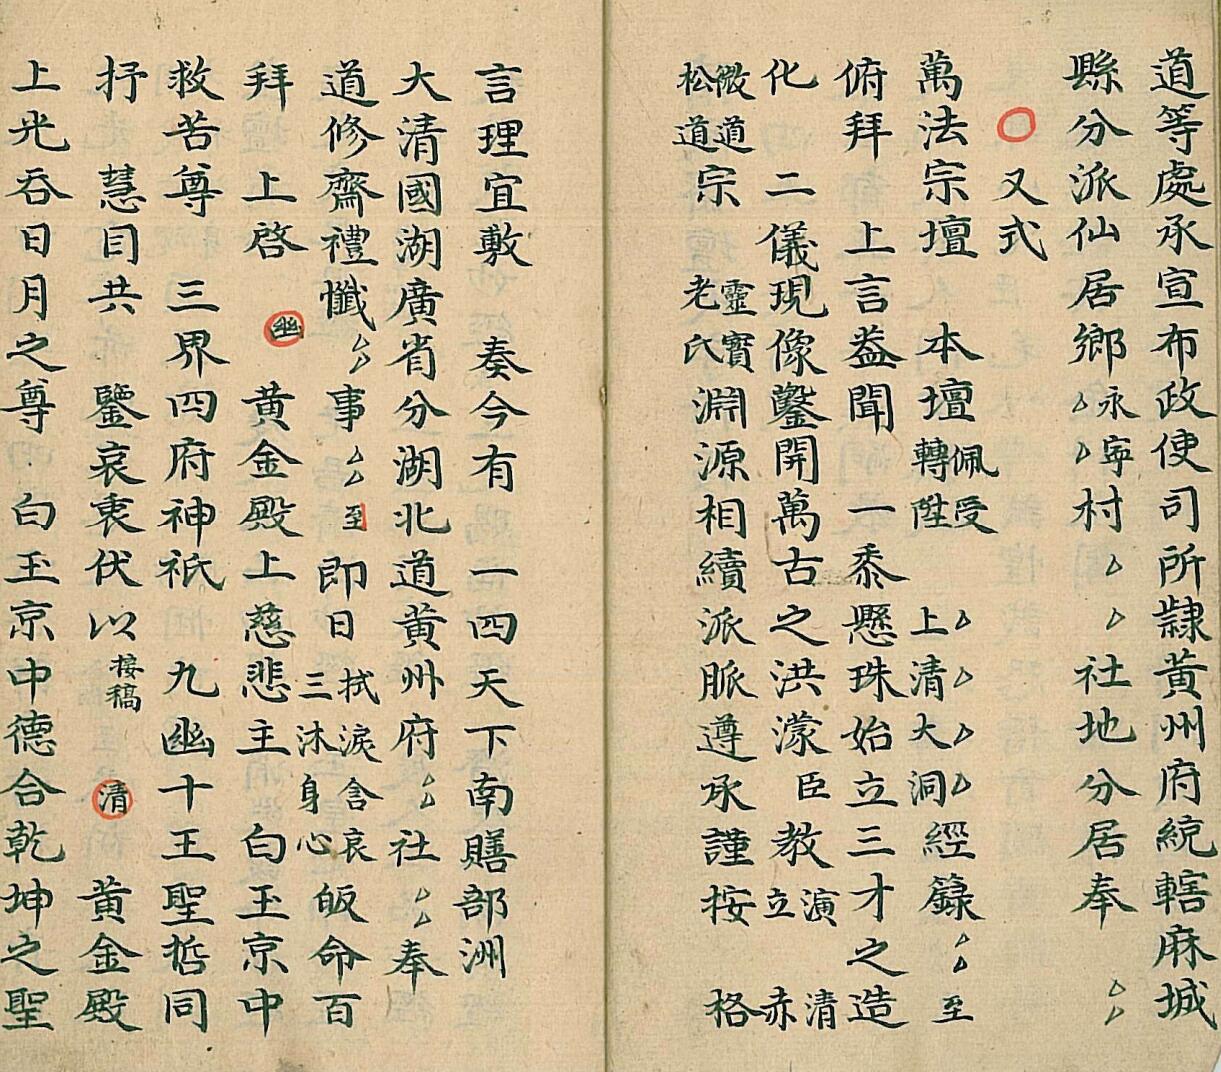 道等處承宣布政使司所隸黃州府統轄麻城
縣分派仙居鄉永寧村社地分居奉
又式
萬法宗壇 本壇佩受轉陞 上清大洞經籙 至
俯拜 上言益聞一黍懸珠始立三才之造
化 二儀現像鑿開萬古之洪濛臣 教演立 清赤
微道松道宗 靈寶老氏淵源相續派脈遵承謹按 格
言理宜敷 奏今有一四天下南贍部洲
大清國湖廣省分湖北道黃州府社奉
道修齋禮懺事至即日拭淚含哀三沐身心皈命百
拜 上啓 幽 黃金殿上慈悲主白玉京中
救苦尊 三界四府神祇 九幽十王聖哲同
抒 慧目共 鑒哀衷伏以接稿 清 黃金殿
上光吞日月之尊 白玉京中德合乾坤之聖